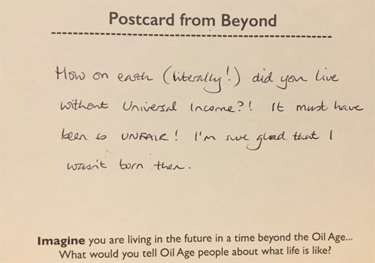 Postcard from Beyond
How on earth (literally!) did you live
without Universal Income?! It must have
been so UNFAIR! I'm sure glad that I
wasn't born then.
Imagine you are living in the future in a time beyond the Oil Age...
What would you tell Oil Age people about what life is like?